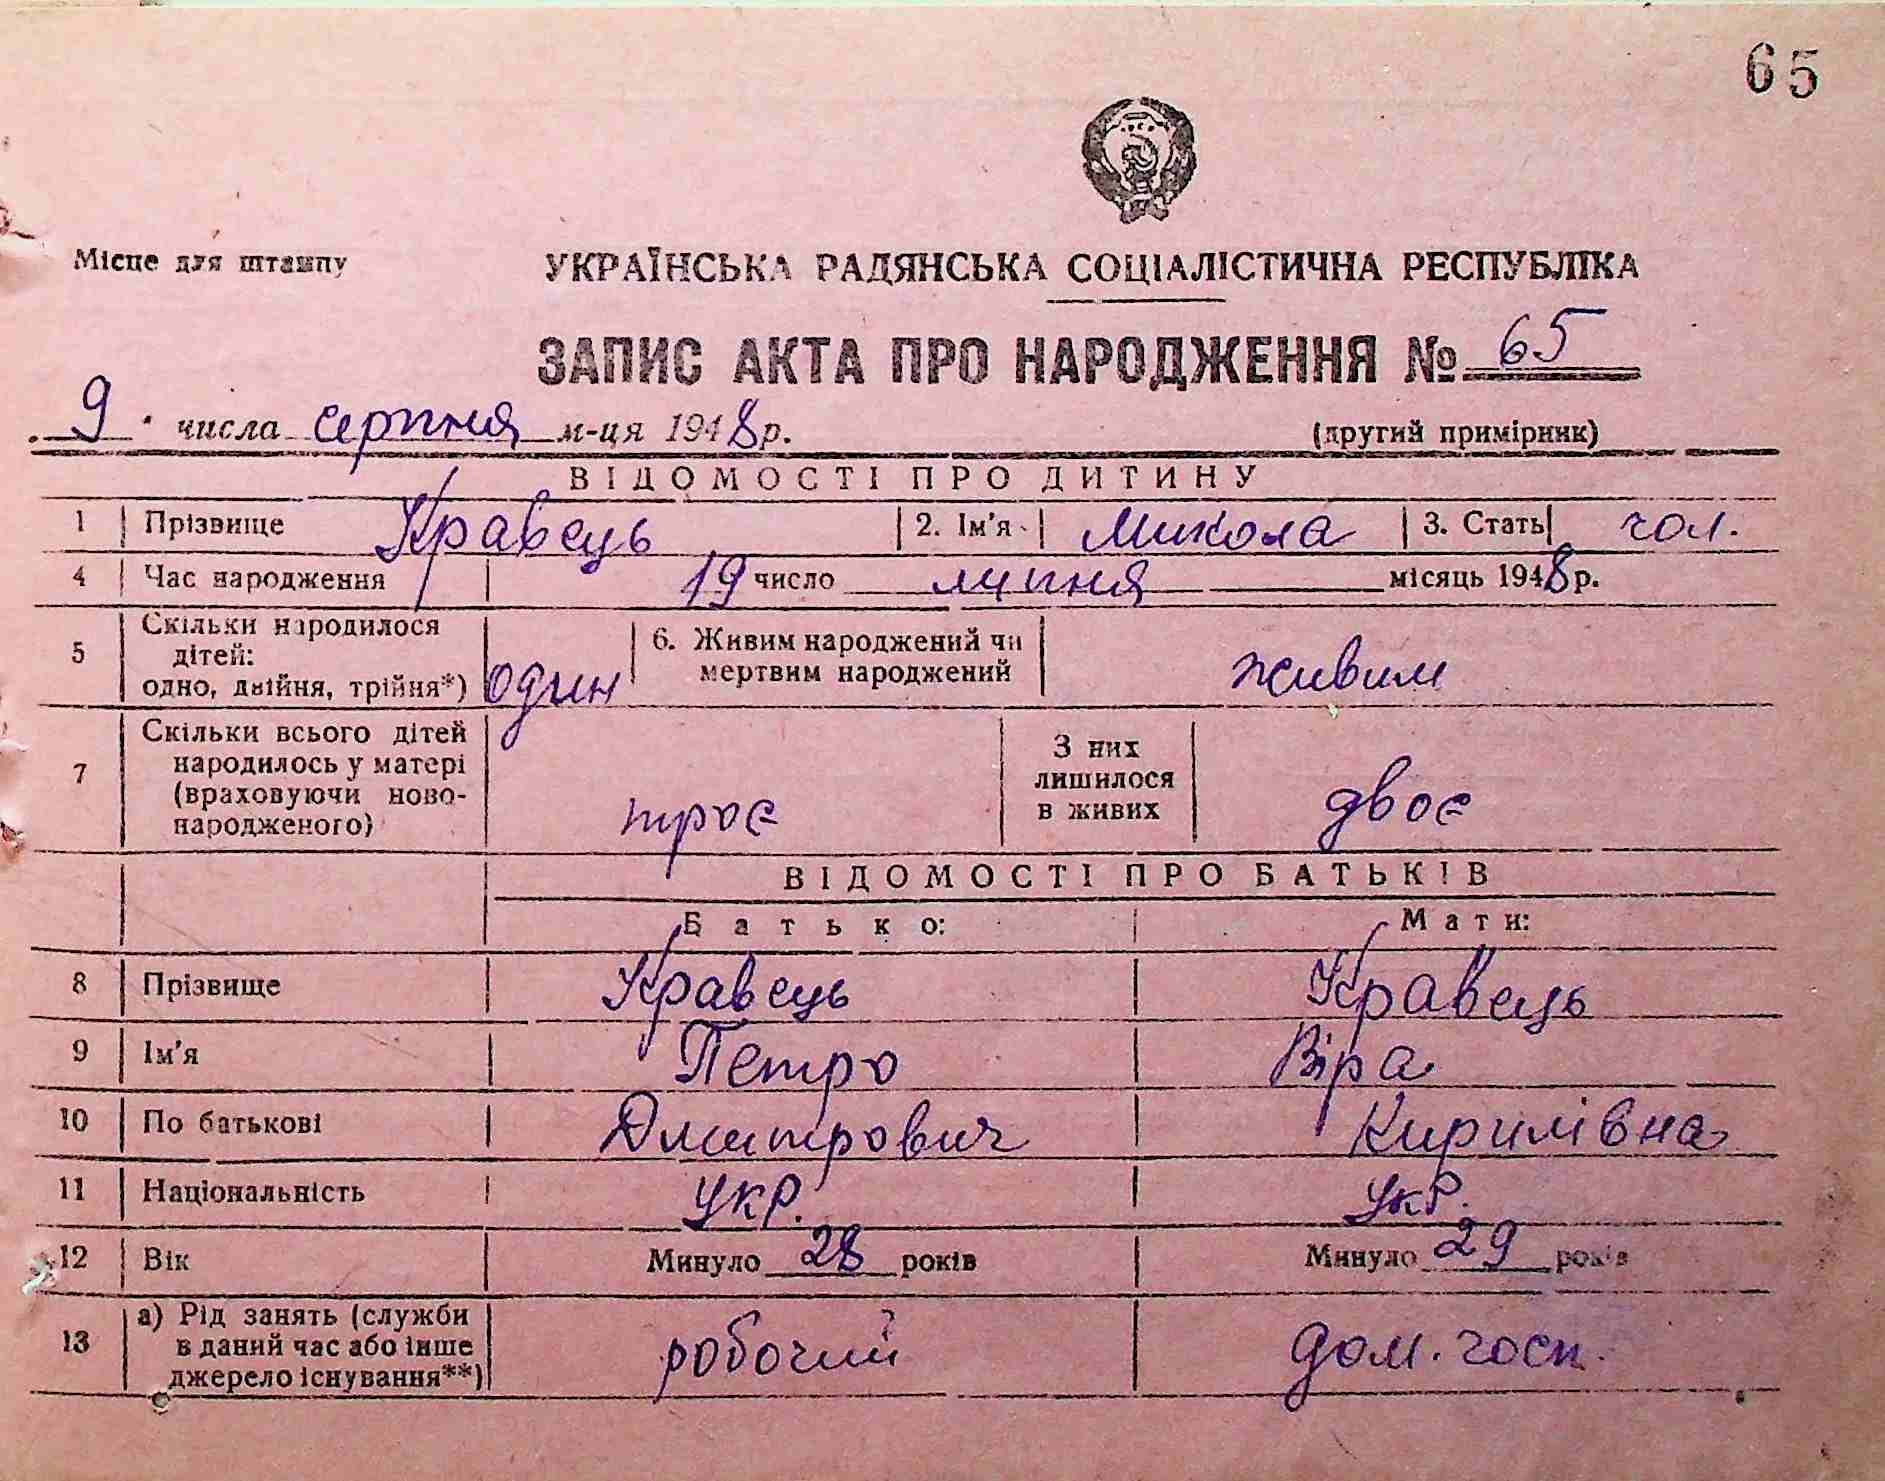 65
Місце для штампу
УКРАЇНСЬКА РАДЯНСЬКА СОЦІАЛІСТИЧНА РЕСПУБЛІКА
ЗАПИС АКТА ПРО НАРОДЖЕННЯ № 65
9 числа серпня м-ця 1948 р.
(другий примірник)
ВІДОМОСТІ ПРО ДИТИНУ
1 Прізвище Кравець 2. Ім'я Микола 3. Стать чол.
4 Час народження 19 число липня місяць 1948 р.
5 Скільки народилося дітей: одно, двійня, трійня*) один 6. Живим народжений чи мертвим народжений живим
7 Скільки всього дітей народилось у матері (враховуючи ново-народженого) троє З них лишилося в живих двоє
ВІДОМОСТІ ПРО БАТЬКІВ
Батько: Мати:
8 Прізвище Кравець Кравець
9 Ім'я Петро Віра
10 По батькові Дмитрович Кирилівна
11 Національність укр. укр.
12 Вік Минуло 28 років Минуло 29 років
13 а) Рід занять (служби в даний час або інше джерело існування**) робочий дом. госп.